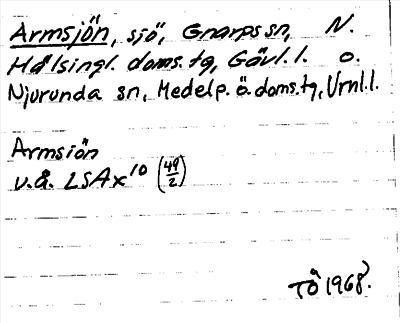 Armsjön, sjö, Gnarps sn, N.
Hälsingl. doms.tg, Gävl.l. o.
Njurunda sn, Medelp. ö. doms.tg, Vrnl.l.
Armsiön
v.å. LSA x¹⁰ (49/2)
TÖ 1968.